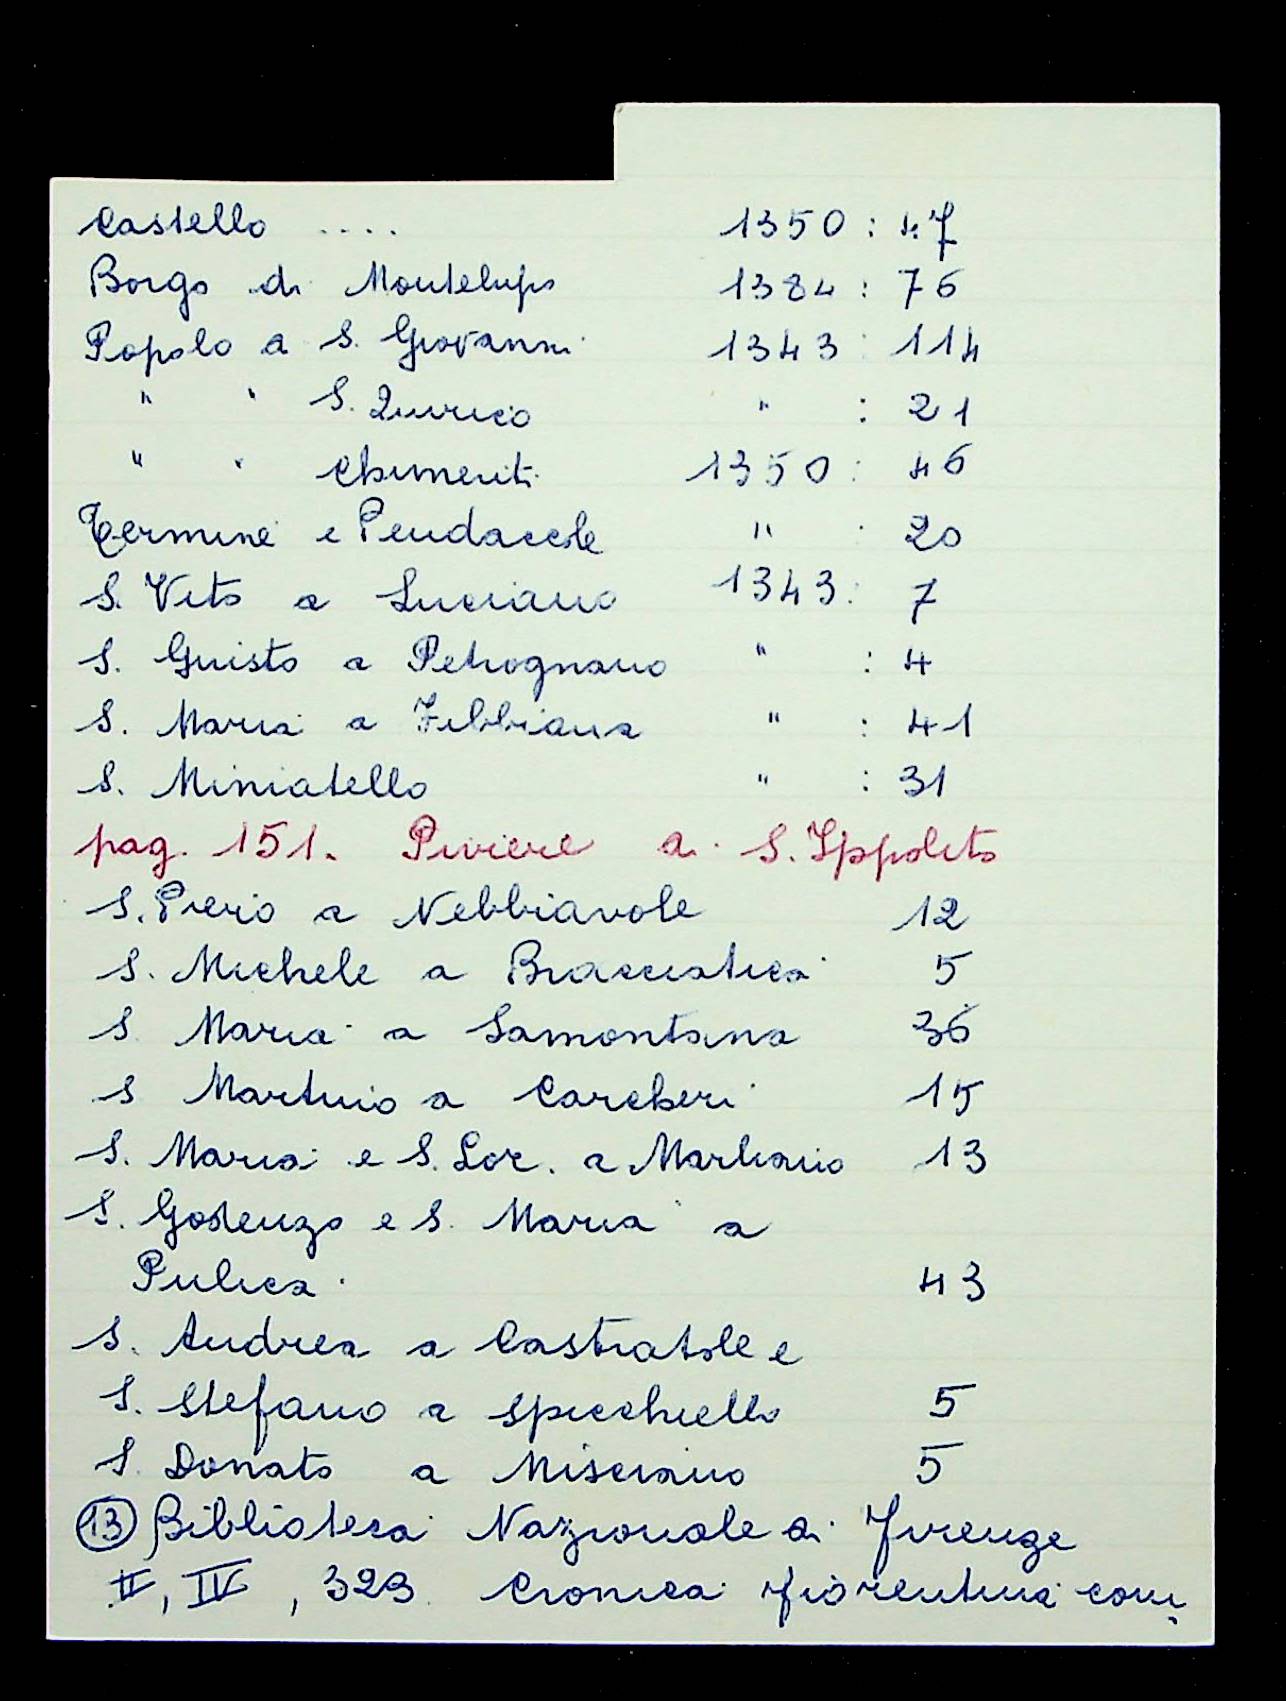 Castello .... 1350 : 47
Borgo di Montelupo 1384 : 76
Popolo a S. Giovanni 1343 : 114
" " S. Quirico " : 21
" " Chimenti 1350 : 46
Termine e Pendaccole " : 20
S. Vito a Luciano 1343 : 7
S. Giusto a Petrognano " : 4
S. Maria a Fibbiana " : 41
S. Miniatello " : 31
pag. 151. Piviere di S. Ippolito
S. Piero a Nebbiavole 12
S. Michele a Bracciatica 5
S. Maria a Samontana 36
S Martino a Carcheri 15
S. Maria e S. Lor. a Marliano 13
S. Godenzo e S. Maria a
Pulica 43
S. Andrea a Castratole e
S. Stefano a Spicchiello 5
S. Donato a Misciano 5
13 Biblioteca Nazionale di Firenze
II, IV, 323. Cronica fiorentina com